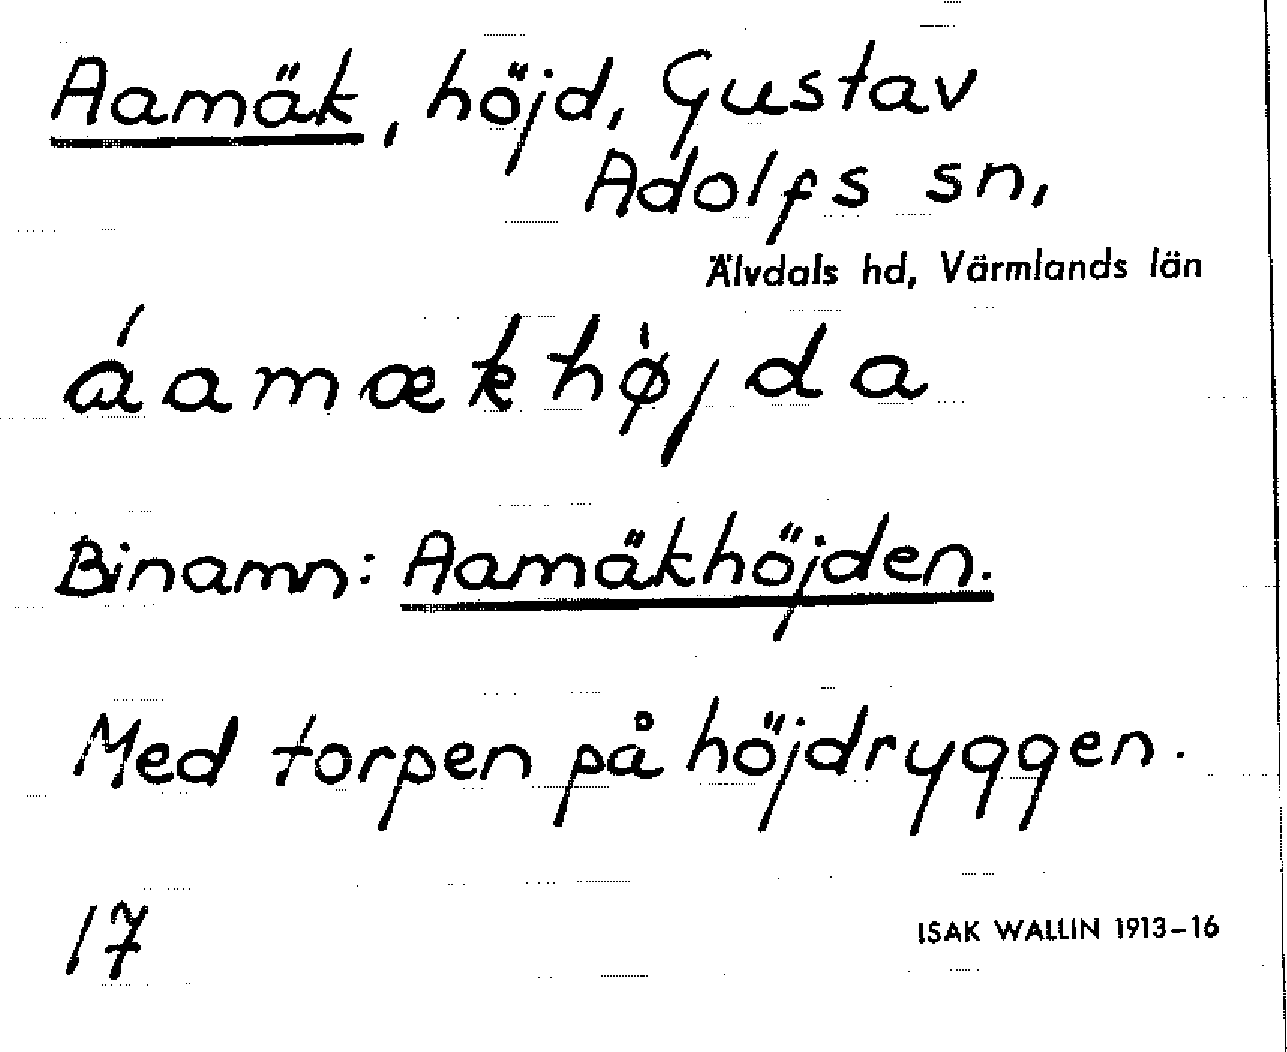 Aamäk, höjd, Gustav
Adolfs sn,
Älvdals hd, Värmlands län
áamækhø̀jda
Binamn: Aamäkhöjden.
Med torpen på höjdryggen.
17
ISAK WALLIN 1913-16